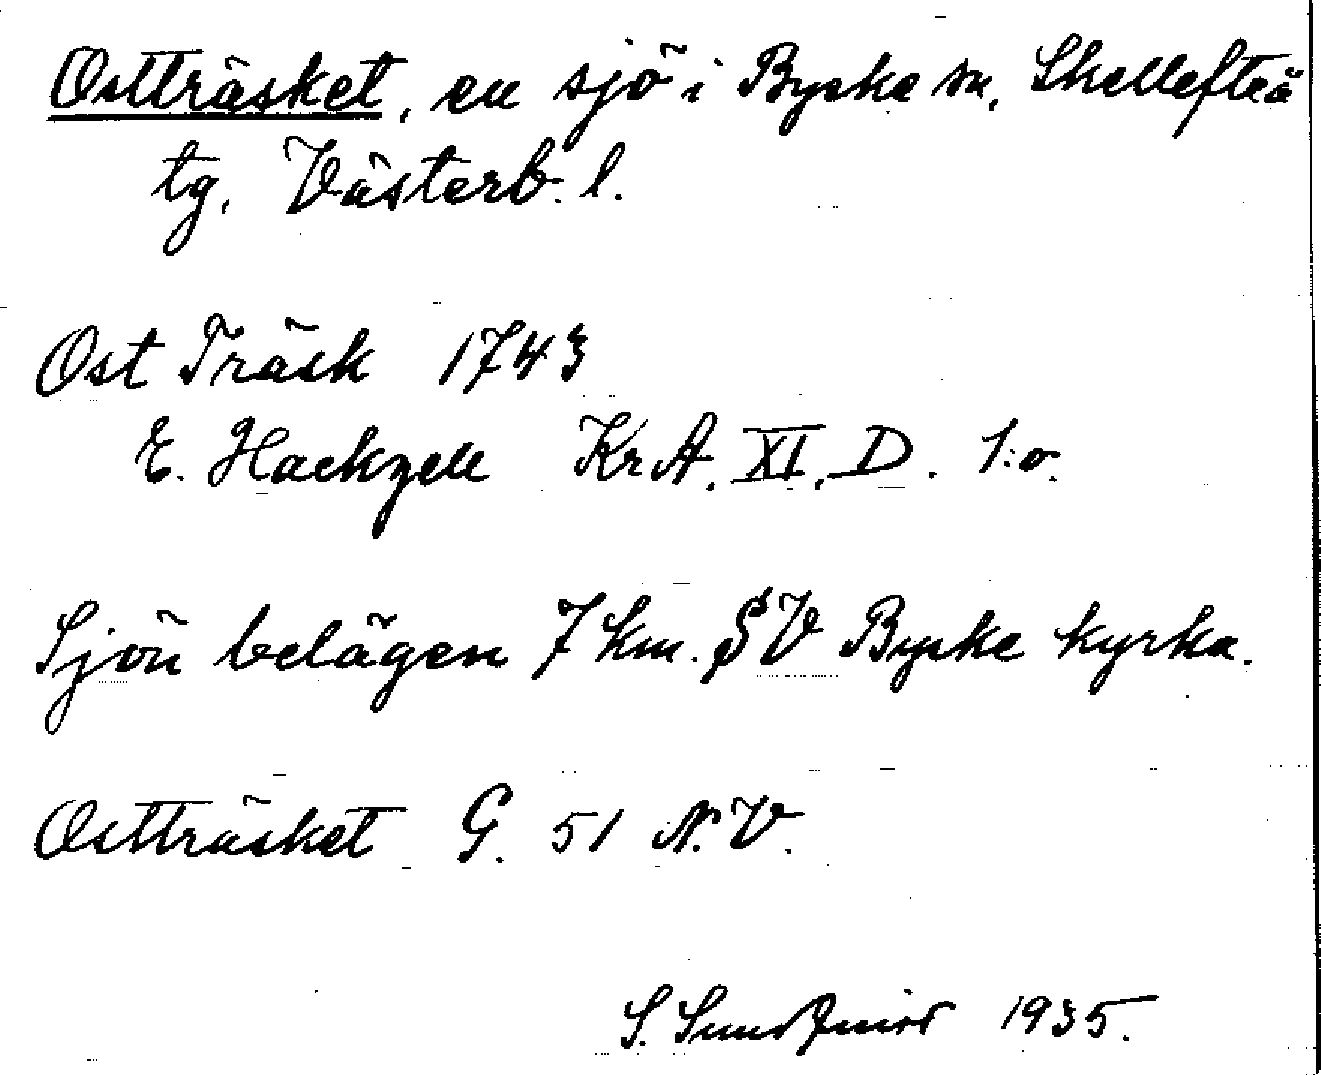 Ostträsket, en sjö i Byske sn, Skellefteå
tg, Västerb. l.
Ost Träsk 1743
E. Hackzell KrA. XI. D. 1:o.
Sjön belägen 7 km. SV Byske kyrka.
Ostträsket G. 51 N.V.
S. 1935.